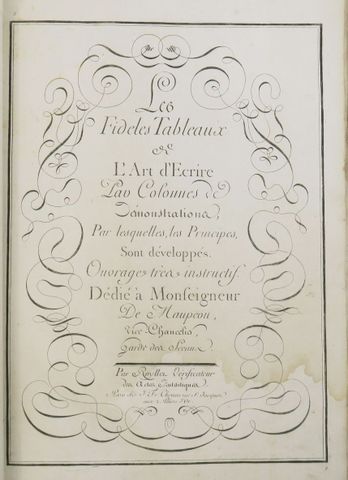 Les
Fideles Tableaux
de
L'Art d'Ecrire
Par Colonnes de
Démonstrations,
Par lesquelles, les Principes,
Sont développés.
Ouvrage très instructif.
Dédié à Monseigneur
De Maupeou,
Vice-Chancelier,
Garde des Sceaux.
Par Royllet Vérificateur
des Actes
Paris chez J. Fr. Chereau rue St. Jacques